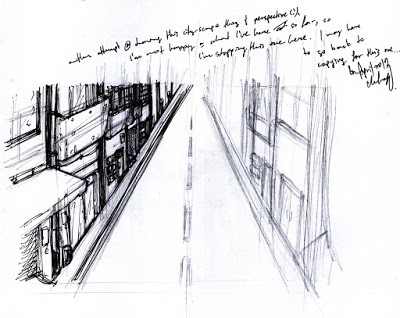 another attempt @ drawing this city-scape thing & perspective (!).
i'm not happy w/ what i've done so far, so
i'm stopping this one here. I may have
to go back to
copying for this one...